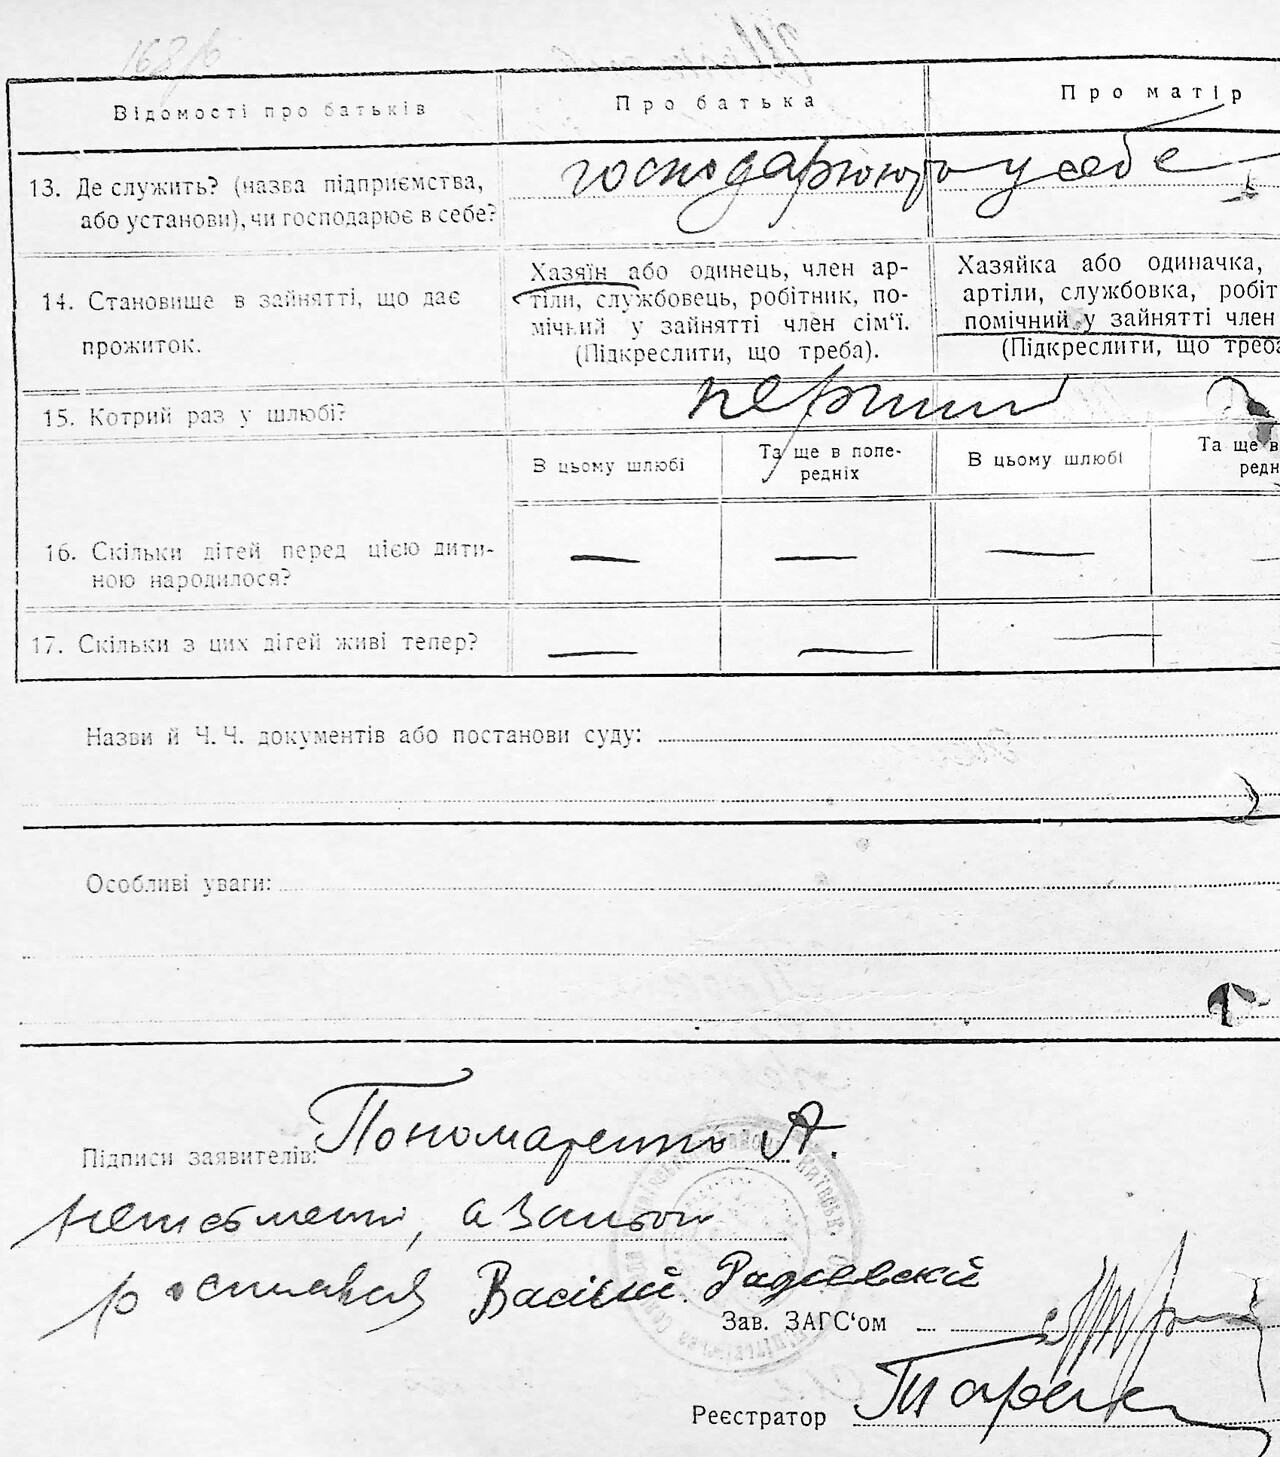 168/6
Відомості про батьків
Про батька
Про матір
13. Де служить? (назва підприємства,
або установи), чи господарює в себе?
господарюють у себе
14. Становище в зайнятті, що дає
прожиток.
Хазяїн або одинець, член ар-
тіли, службовець, робітник, по-
мічний у зайнятті член сім‘ї.
(Підкреслити, що треба).
Хазяйка або одиначка,
артіли, службовка, робіт
помічний у зайнятті член
(Підкреслити, що треба
15. Котрий раз у шлюбі?
перший
В цьому шлюбі
Та ще в попе-
редніх
В цьому шлюбі
Та ще в
редн
16. Скільки дітей перед цією дити-
ною народилося?
— — — —
17. Скільки з цих дітей живі тепер?
— — —
Назви й Ч. Ч. документів або постанови суду:
Особливі уваги:
Підписи заявителів: Пономаренко А.
неписьменні, а за них
росписався Василий Радієвскій
Зав. ЗАГС‘ом
Реєстратор